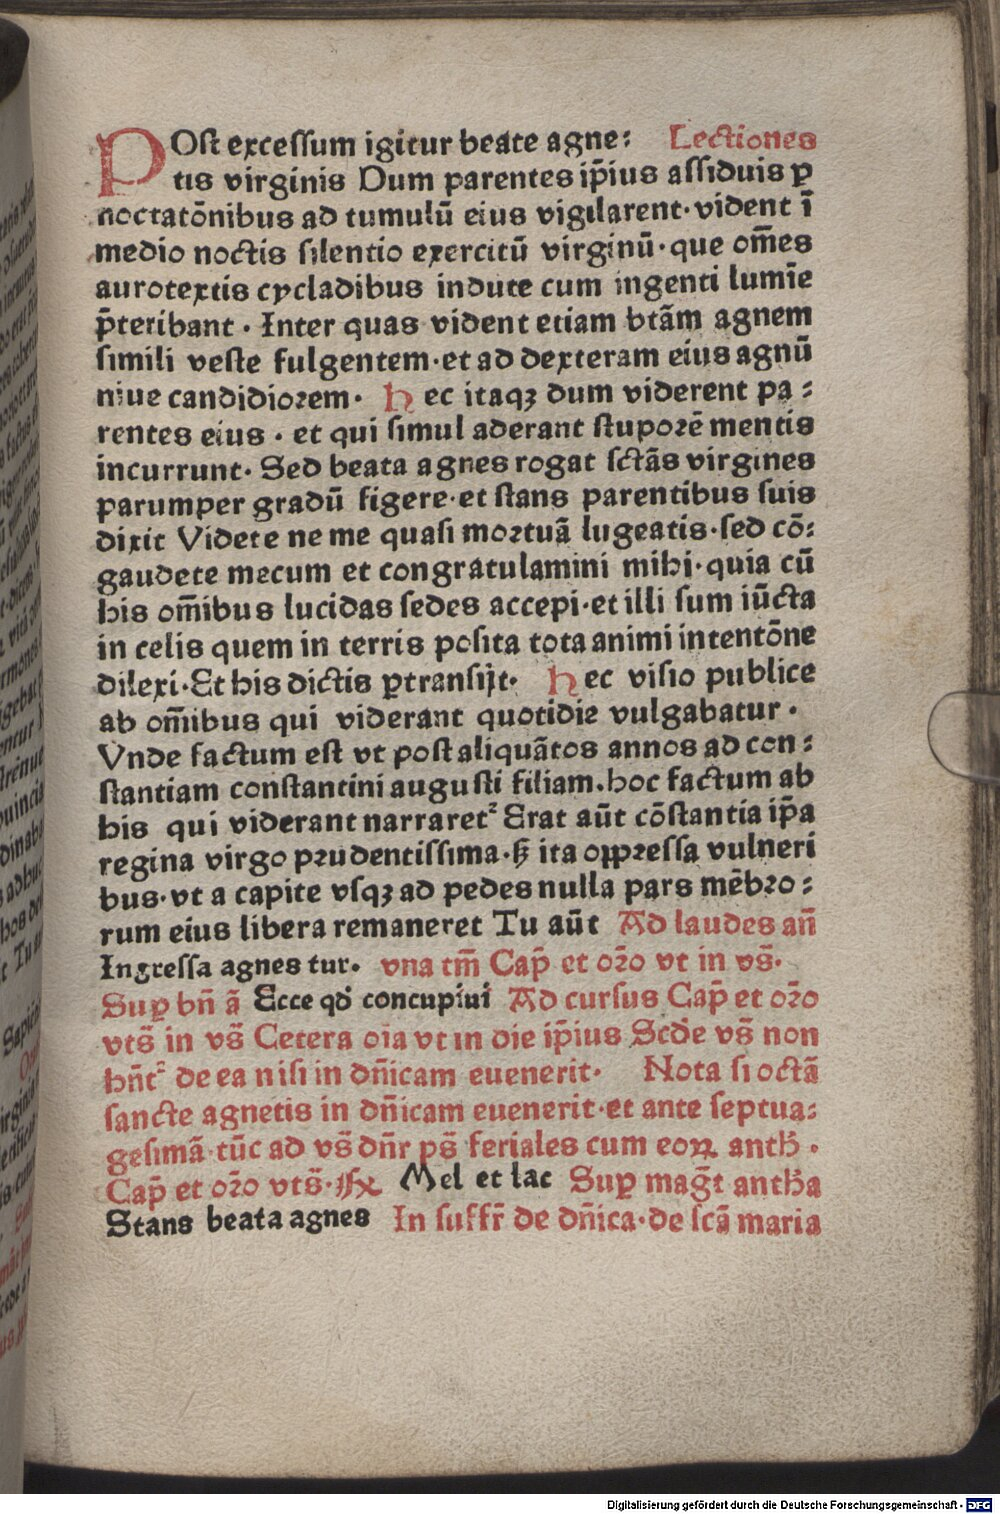 POſt exceſſum igitur beate agne: Lectiones
tis virginis Dum parentes ip̄ius aſſiduis ꝑ
noctatōnibus ad tumulū eius vigilarent· vident ī
medio noctis ſilentio exercitū virginū· que om̄es
aurotextis cycladibus indute cum ingenti lumīe
p̄teribant · Inter quas vident etiam btām agnem
ſimili veſte fulgentem· et ad dexteram eius agnū
niue candidioꝛem· Hec itaqꝫ dum viderent pa:
rentes eius · et qui ſimul aderant ſtupoꝛē mentis
incurrunt· Sed beata agnes rogat ſctās virgines
parumper gradū figere· et ſtans parentibus ſuis
dixit Videte ne me quaſi moꝛtuā lugeatis· ſed cō:
gaudete mecum et congratulamini mihi· quia cū
his om̄ibus lucidas ſedes accepi· et illi ſum iūcta
in celis quem in terris poſita tota animi intentōne
dilexi· Et his dictis ꝑtranſijt· Hec viſio publice
ab om̄ibus qui viderant quotidie vulgabatur ·
Vnde factum eſt vt poſt aliquātos annos ad con:
ſtantiam conſtantini auguſti filiam. hoc factum ab
his qui viderant narraret᷑ Erat aūt cōſtantia ip̄a
regina virgo pꝛudentiſſima· ſꝫ ita oppꝛeſſa vulneri
bus· vt a capite vſqꝫ ad pedes nulla pars mēbꝛo:
rum eius libera remaneret Tu aūt Ad laudes an̄
Ingreſſa agnes tur. vna tm̄ Cap̄ et oꝛ̄o vt in vs̄·
Suꝑ bn̄ ā Ecce qd̄ concupiui Ad curſus Cap̄ et oꝛ̄o
vts̄ in vs̄ Cetera oīa vt in die ip̄ius Scd̄e vs̄ non
hn̄t᷑ de ea niſi in dn̄icam euenerit· Nota ſi octā
ſancte agnetis in dn̄icam euenerit· et ante ſeptua:
geſimā· tūc ad vs̄ dn̄r ps̄ feriales cum eoꝝ anth̄ ·
Cap̄ et oꝛ̄o vts̄· ℟ Mel et lac Suꝑ maḡt anth̄a
Stans beata agnes In ſuffr̄ de dn̄ica· de ſcā maria
Digitalisierung gefördert durch die Deutsche Forschungsgemeinschaft · DFG